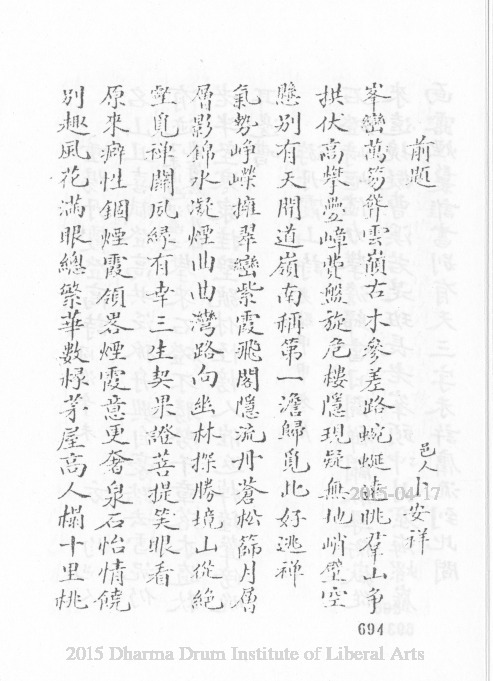 前題
邑人 安祥
峯巒萬笏聳雲巔古木參差路蜿蜒遠眺羣山爭
拱伏高攀疊嶂費盤旋危樓隱現疑無地峭壁空
懸別有天聞道嶺南稱第一澹歸覓此好逃禪
氣勢崢嶸擁翠巒紫霞飛閣隱流丹蒼松篩月層
層影錦水凝煙曲曲灣路向幽林探勝境山從絕
壑覓禪關夙緣有幸三生契果證菩提笑眼看
原來癖性錮煙霞領畧煙霞意更奢泉石怡情饒
別趣風花滿眼總繁華數椽茅屋高人榻十里桃
694
2015-04-17
2015 Dharma Drum Institute of Liberal Arts